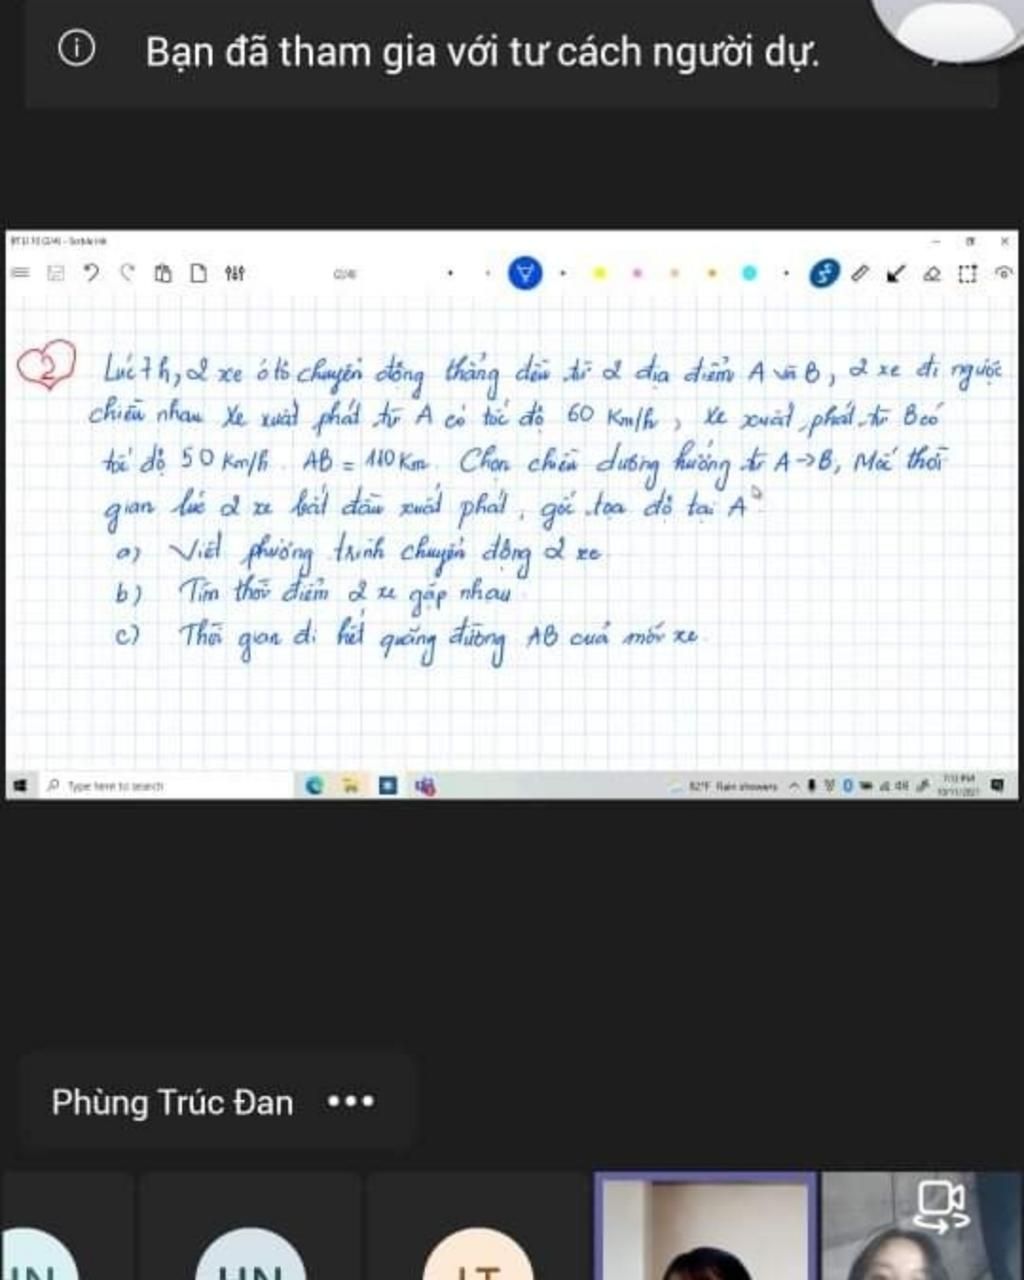 Bạn đã tham gia với tư cách người dự.
2 Lúc 7h, 2 xe ô tô chuyển động thẳng đều từ 2 địa điểm A và B, 2 xe đi ngược
chiều nhau Xe xuất phát từ A có tốc độ 60 Km/h, Xe xuất phát từ B có
tốc độ 50 Km/h. AB = 110 Km. Chọn chiều dương hướng từ A → B, Mốc thời
gian lúc 2 xe bắt đầu xuất phát, gốc tọa độ tại A.
a) Viết phương trình chuyển động 2 xe
b) Tìm thời điểm 2 xe gặp nhau
c) Thời gian đi hết quãng đường AB của mỗi xe.
Type here to search
82°F Rain showers
7:13 PM
10/11/2021
Phùng Trúc Đan
HN
LT